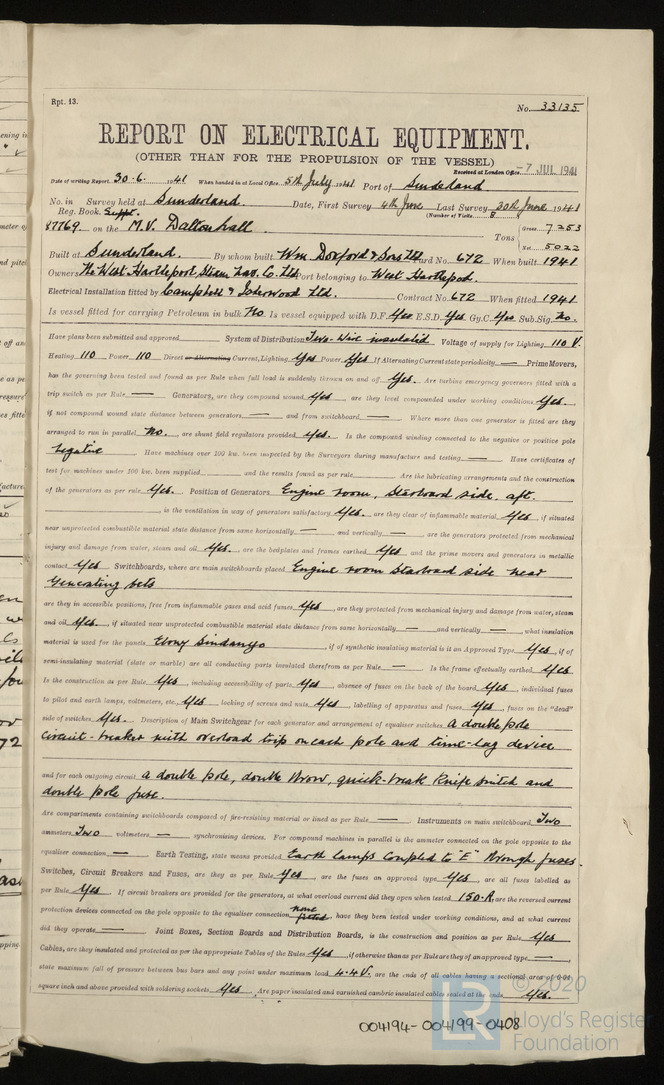 Rpt. 13.
No. 33135
REPORT ON ELECTRICAL EQUIPMENT.
(OTHER THAN FOR THE PROPULSION OF THE VESSEL)
Received at London Office -7 JUL 1941
Date of writing Report 30.6. 1941 When handed in at Local Office 5th July 1941 Port of Sunderland
No. in Survey held at Sunderland. Date, First Survey 4th June Last Survey 30th June 1941
Reg. Book. Suppt. (Number of Visits 8)
87769 on the M.V. Daltonhall Tons { Gross 7253
Net 5022
Built at Sunderland. By whom built Wm Doxford & Sons Ltd Yard No. 672 When built 1941
Owners The West Hartlepool Steam Nav. Co. Ltd Port belonging to West Hartlepool.
Electrical Installation fitted by Campbell & Isherwood Ltd. Contract No. 672 When fitted 1941
Is vessel fitted for carrying Petroleum in bulk No Is vessel equipped with D.F. Yes E.S.D. Yes Gy.C. Yes Sub.Sig. No.
Have plans been submitted and approved System of Distribution Two-Wire insulated Voltage of supply for Lighting 110 V.
Heating 110 Power 110 Direct or Alternating Current, Lighting Yes Power Yes If Alternating Current state periodicity — Prime Movers,
has the governing been tested and found as per Rule when full load is suddenly thrown on and off Yes. Are turbine emergency governors fitted with a
trip switch as per Rule — Generators, are they compound wound Yes are they level compounded under working conditions Yes.
if not compound wound state distance between generators — and from switchboard — Where more than one generator is fitted are they
arranged to run in parallel No. are shunt field regulators provided Yes. Is the compound winding connected to the negative or positive pole
Negative Have machines over 100 kw. been inspected by the Surveyors during manufacture and testing — Have certificates of
test for machines under 100 kw. been supplied and the results found as per rule Are the lubricating arrangements and the construction
of the generators as per rule Yes. Position of Generators Engine room, Starboard side aft.
is the ventilation in way of generators satisfactory Yes. are they clear of inflammable material Yes if situated
near unprotected combustible material state distance from same horizontally — and vertically — are the generators protected from mechanical
injury and damage from water, steam and oil Yes. are the bedplates and frames earthed Yes and the prime movers and generators in metallic
contact Yes Switchboards, where are main switchboards placed Engine room Starboard side near
Generating sets
are they in accessible positions, free from inflammable gases and acid fumes Yes, are they protected from mechanical injury and damage from water, steam
and oil Yes. if situated near unprotected combustible material state distance from same horizontally — and vertically — what insulation
material is used for the panels Ebony Sindanyo if of synthetic insulating material is it an Approved Type Yes if of
semi-insulating material (slate or marble) are all conducting parts insulated therefrom as per Rule — Is the frame effectually earthed Yes
Is the construction as per Rule Yes, including accessibility of parts Yes, absence of fuses on the back of the board Yes, individual fuses
to pilot and earth lamps, voltmeters, etc., Yes, locking of screws and nuts Yes, labelling of apparatus and fuses Yes, fuses on the "dead"
side of switches Yes. Description of Main Switchgear for each generator and arrangement of equaliser switches A double pole
circuit-breaker with overload trip on each pole and time-lag device
and for each outgoing circuit a double pole, double throw, quick-break knife switch and
double pole fuse.
Are compartments containing switchboards composed of fire-resisting material or lined as per Rule — Instruments on main switchboard Two
ammeters Two voltmeters — synchronising devices. For compound machines in parallel is the ammeter connected on the pole opposite to the
equaliser connection — Earth Testing, state means provided Earth lamps coupled to "E" through fuses.
Switches, Circuit Breakers and Fuses, are they as per Rule Yes are the fuses an approved type Yes are all fuses labelled as
per Rule Yes If circuit breakers are provided for the generators, at what overload current did they open when tested 150 A are the reversed current
protection devices connected on the pole opposite to the equaliser connection none fitted have they been tested under working conditions, and at what current
did they operate — Joint Boxes, Section Boards and Distribution Boards, is the construction and position as per Rule Yes
Cables, are they insulated and protected as per the appropriate Tables of the Rules Yes, if otherwise than as per Rule are they of an approved type —
state maximum fall of pressure between bus bars and any point under maximum load 4.4 V. are the ends of all cables having a sectional area of 0.04
square inch and above provided with soldering sockets Yes Are paper insulated and varnished cambric insulated cables sealed at the ends Yes.
004194-004199-0408
© 2020
LR
Lloyd's Register
Foundation